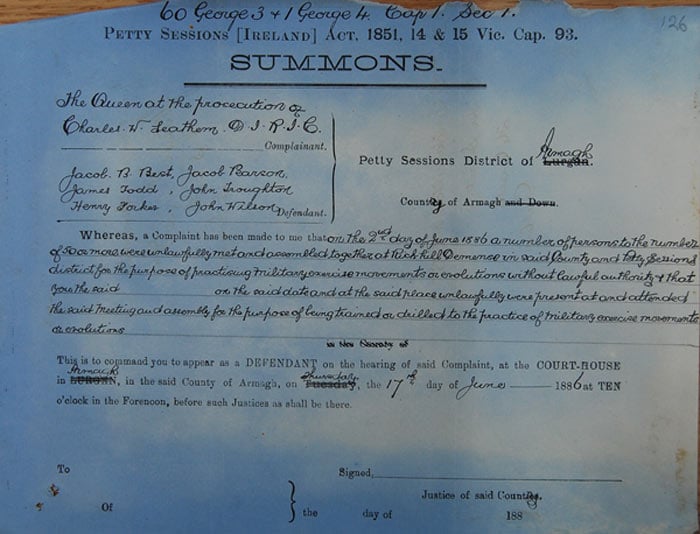 60 George 3 & 1 George 4. Cap 1. Sec 1.
126
PETTY SESSIONS [IRELAND] ACT, 1851, 14 & 15 Vic. Cap. 93.
SUMMONS.
The Queen at the prosecution of
Charles. W. Leathem. D. I. R. I. C.
Complainant.
Jacob. B Best, Jacob Pearson,
James Todd, John Troughton
Henry Forker, John Wilson Defendant.
Petty Sessions District of Armagh Lurgan.
County of Armagh and Down.
Whereas, a Complaint has been made to me that on the 2nd day of June 1886 a number of persons to the number
of 50 or more were unlawfully met and assembled together at Rich hill Demense in said County and Petty Sessions
district for the purpose of practising military exercise movements or evolutions without lawful authority & that
you the said on the said date and at the said place unlawfully were present at and attended
the said meeting and assembly for the purpose of being trained or drilled to the practice of military exercise movements
or evolutions
in the County of
This is to command you to appear as a DEFENDANT on the hearing of said Complaint, at the COURT-HOUSE
in Armagh LURGAN, in the said County of Armagh, on Thursday Tuesday, the 17th day of June 1886 at TEN
o'clock in the Forenoon, before such Justices as shall be there.
To
Signed,
Justice of said County.
Of
the day of 188